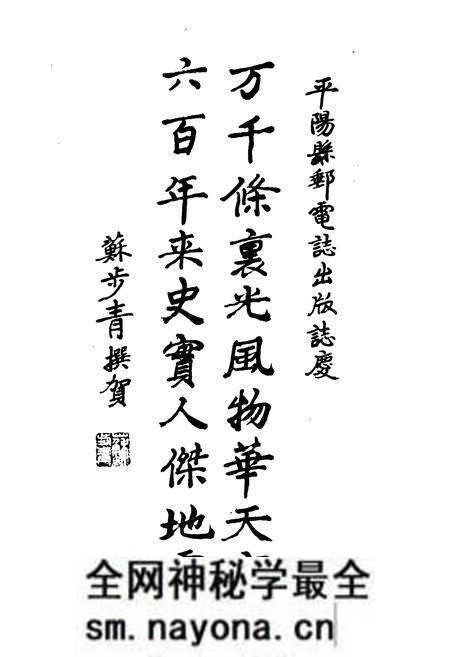 平陽縣郵電誌出版誌慶
万千條裏光風物華天
六百年来史實人傑地
蘇步青撰賀
全网神秘学最全
sm.nayona.cn